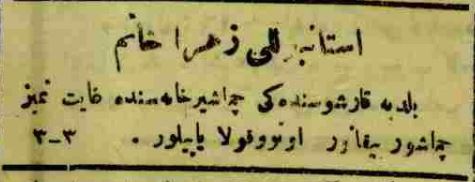 استانبوللى زهرا خانم
بلديه قارشوسنده كى چماشيرخانه سنده غايت تميز
چماشور ييقانور اوتووقولا ياپيلور . ٣-٣